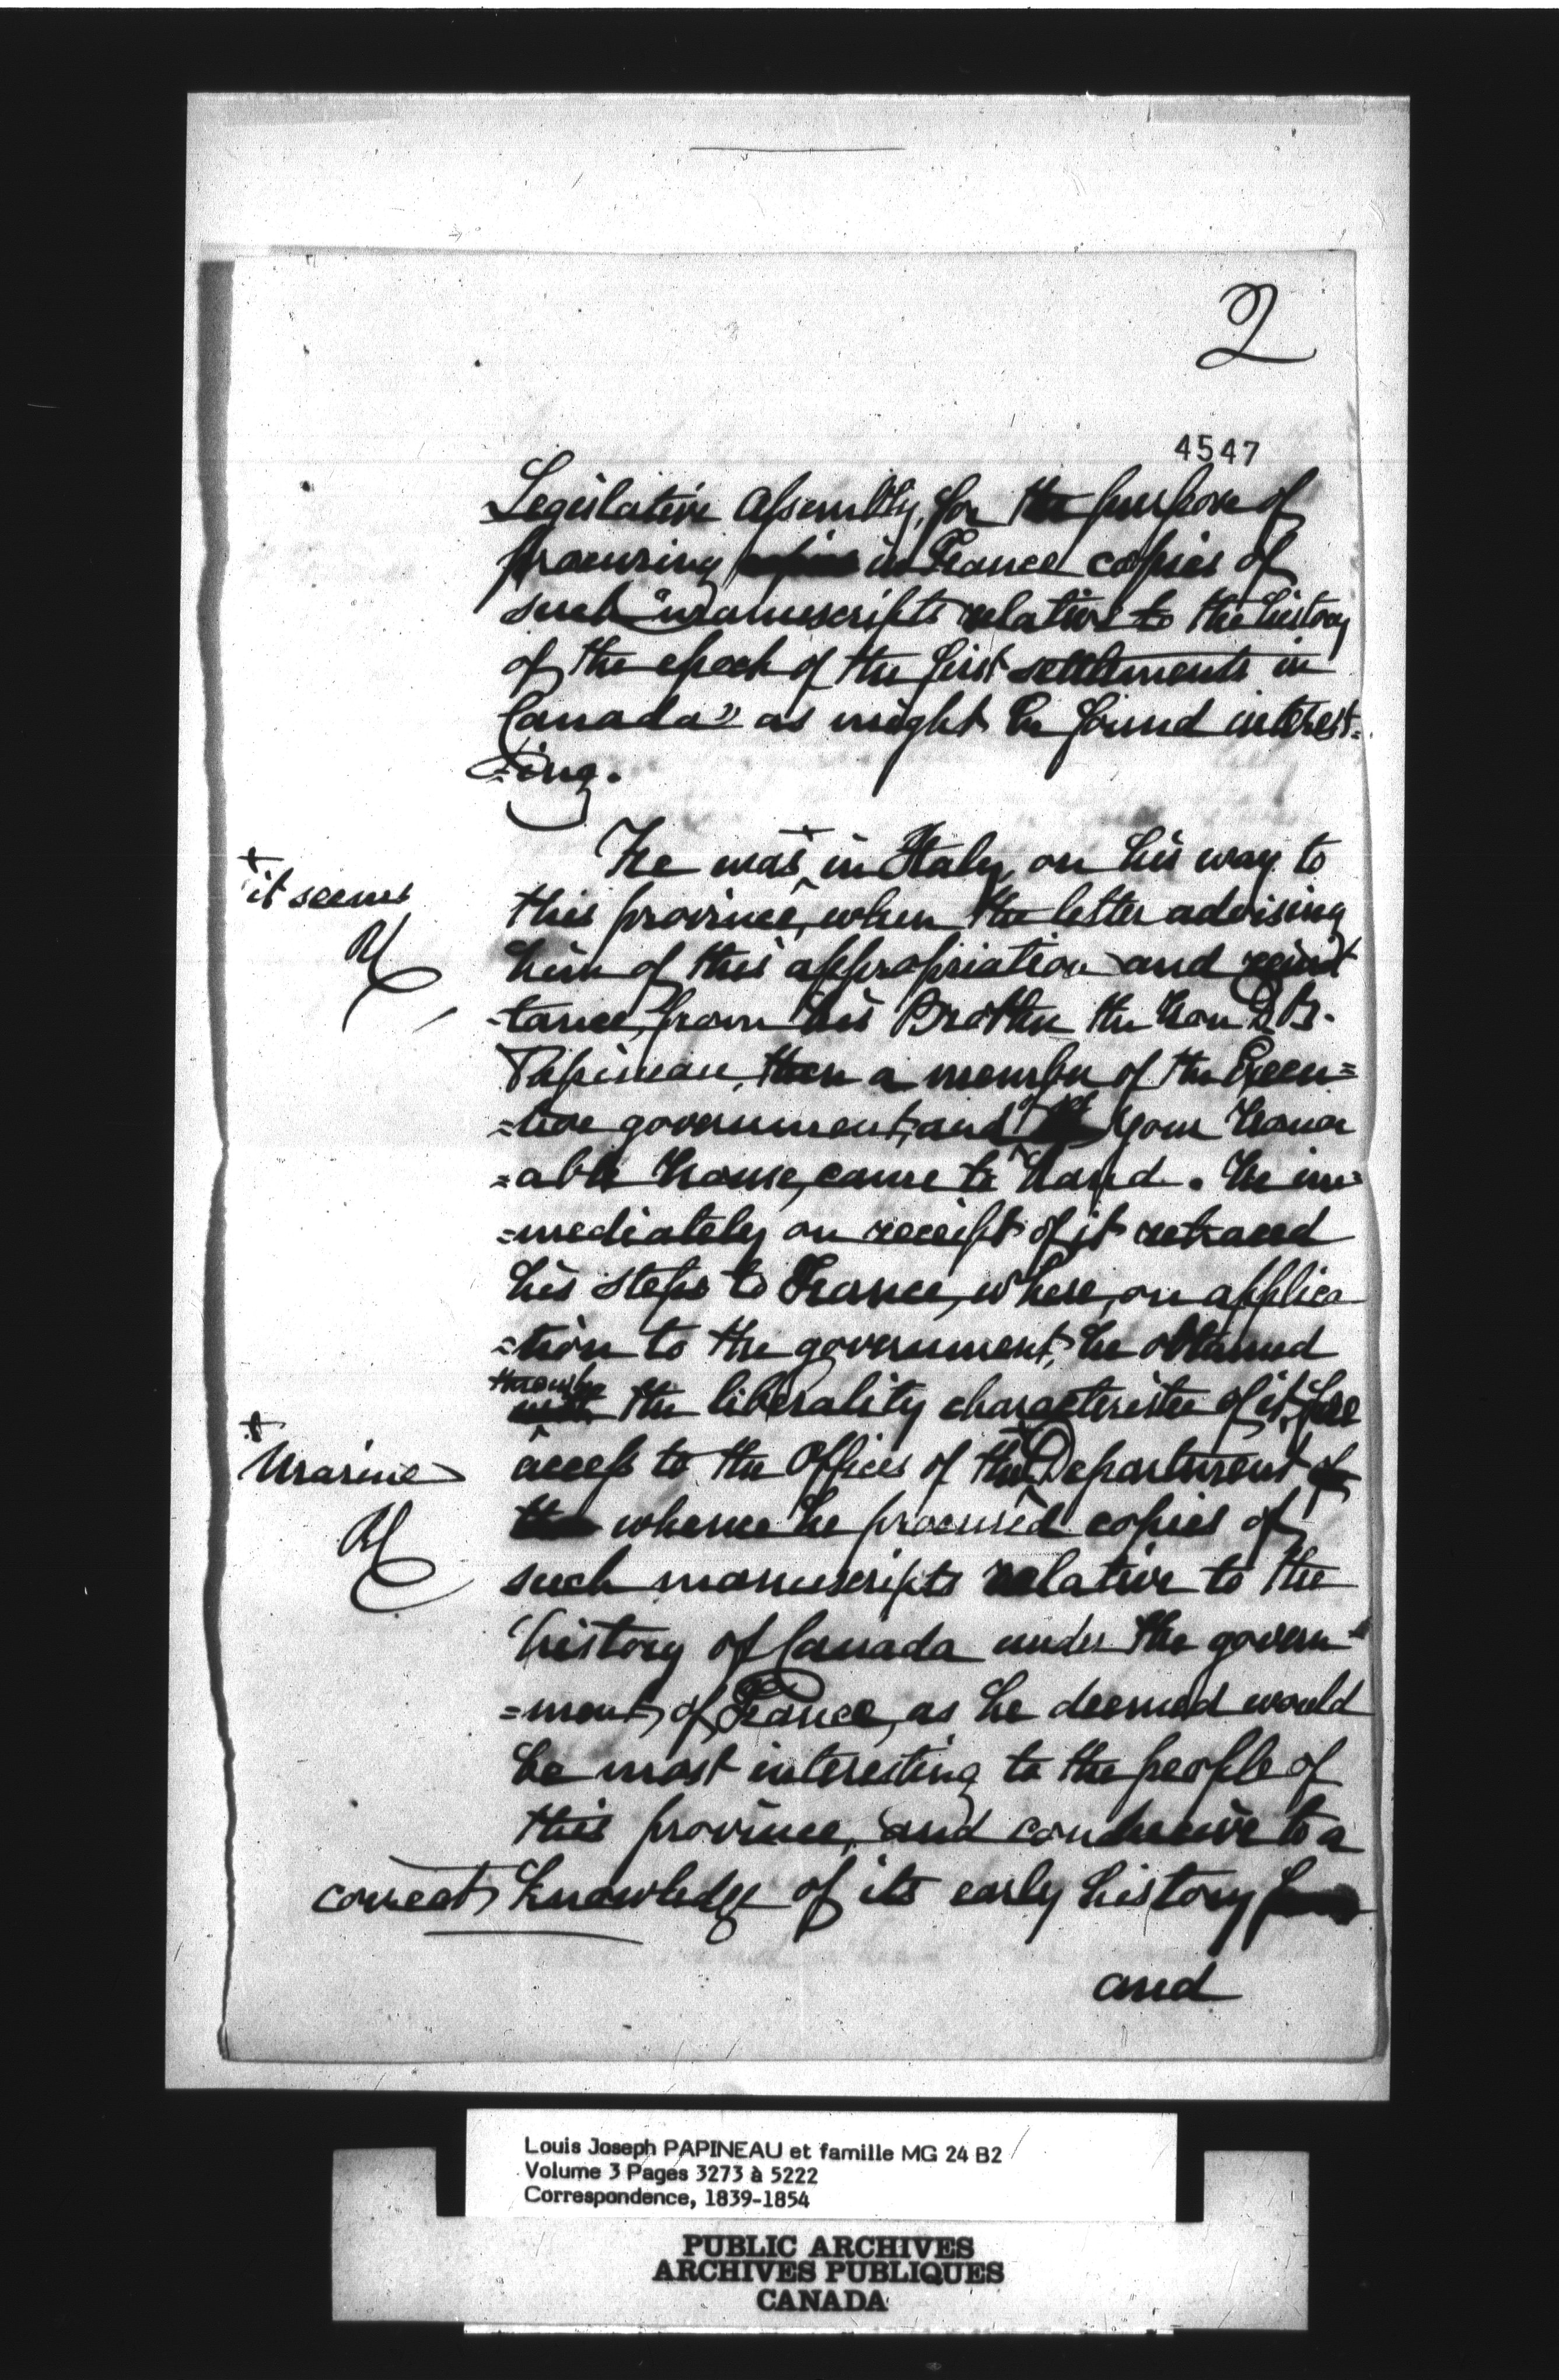 2
4547
Legislative Assembly, for the purpose of
procuring in France copies of
such "manuscripts relative to the history
of the epoch of the first settlements in
Canada" as might be found interest=
=ing.
He was + in Italy, on his way to
+ it seems
this province, when the letter advising
him of this appropriation and remit
=tance, from his Brother the hon D. B.
Papineau, then a member of the Execu=
=tive government, and of your honor
=able house, came to hand. He im=
=mediately on receipt of it retraced
his steps to France, where, on applica
=tion to the government, he obtained
through the liberality characteristic of it, free
access to the Offices of the + Department
+ Marine
whence he procured copies of
such manuscripts relative to the
history of Canada under the govern=
=ment of France, as he deemed would
be most interesting to the people of
this province, and conducive to a
correct knowledge of its early history
and
Louis Joseph PAPINEAU et famille MG 24 B2
Volume 3 Pages 3273 à 5222
Correspondence, 1839-1854
PUBLIC ARCHIVES
ARCHIVES PUBLIQUES
CANADA